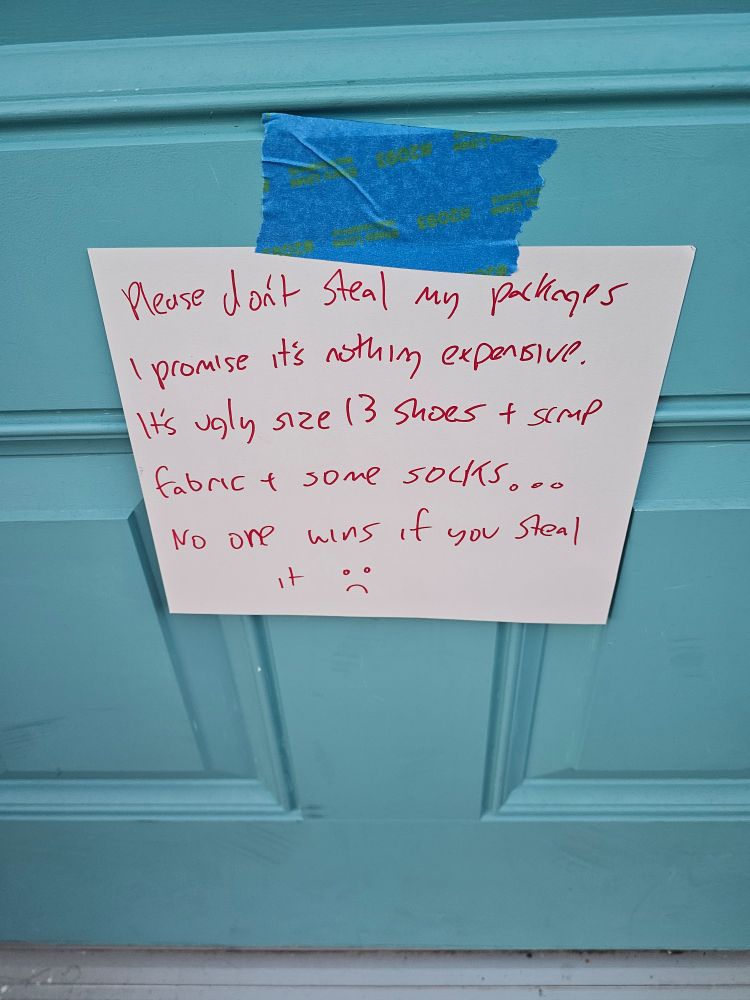 Please don't steal my packages
I promise it's nothing expensive.
It's ugly size 13 shoes + scrap
fabric + some socks...
No one wins if you steal
it :(